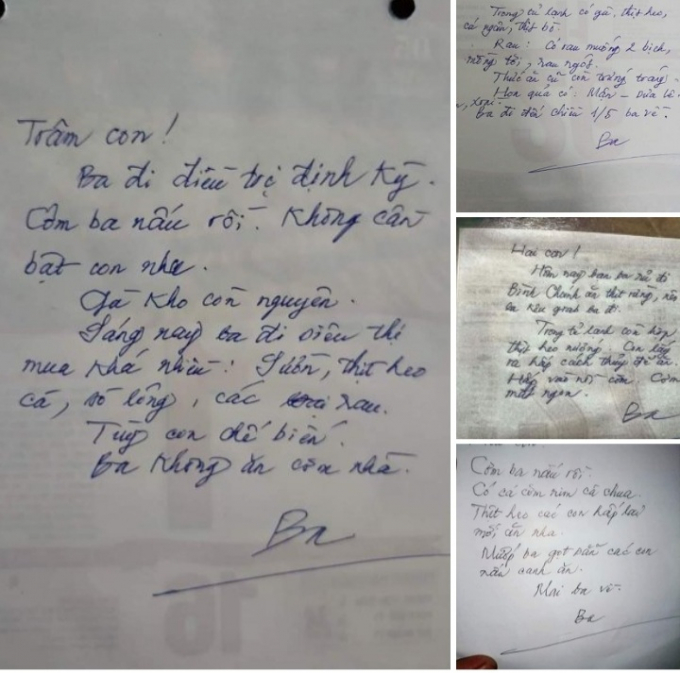 Trâm con!
Ba đi điều trị định kỳ.
Cơm ba nấu rồi. Không cần
bật con nha.
Gà kho còn nguyên.
Sáng nay ba đi siêu thị
mua khá nhiều: Sườn, thịt heo
cá, sò lông, các rau.
Tùy con chế biến.
Ba không ăn cơm nhà.
Ba
16
Trong tủ lạnh có gà, thịt heo,
cá ngừ, thịt bò.
Rau: Có rau muống 2 bịch,
mồng tơi, rau ngót.
Thức ăn cũ còn trứng tráng.
Hoa quả có: Mận - Dưa lê
, xoài.
Ba đi đến chiều 1/5 ba về.
Ba
Hai con!
Hôm nay bạn ba rủ đi
Bình Chánh ăn thịt rừng, nên
ba đi.
Trong tủ lạnh còn hộp
thịt heo nướng. Con lấy
ra hấp cách thủy để ăn.
Hấp vào nồi cơm. Cơm
mất ngon.
Ba
Cơm ba nấu rồi.
Có cá cơm rim cà chua.
Thịt heo các con hấp lại
mới ăn nha.
Mướp ba gọt sẵn các con
nấu canh ăn.
Mai ba về.
Ba